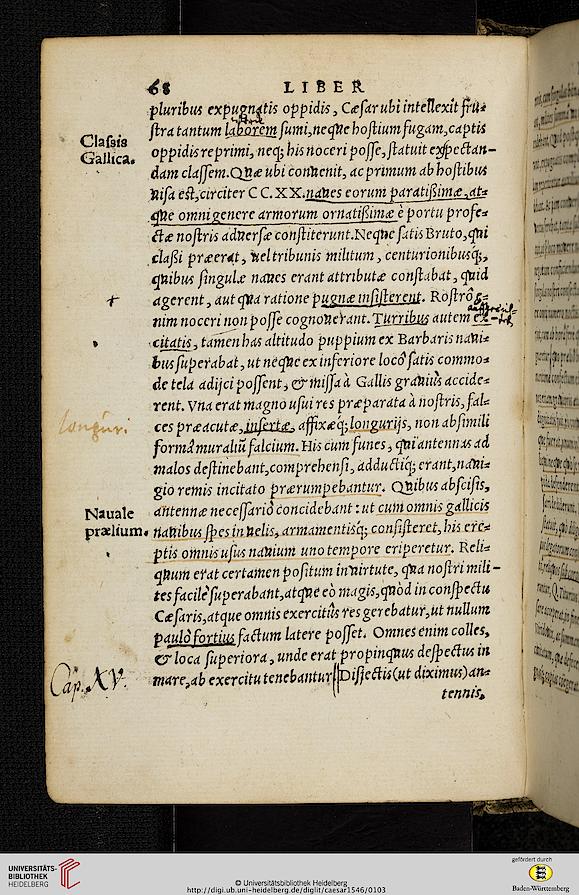 68
LIBER
pluribus expugnatis oppidis, Cæsar ubi intellexit fru-
stra tantum laborem sumi, neque hostium fugam, captis
Classis
Gallica.
oppidis reprimi, neq; his noceri posse, statuit exspectan-
dam classem. Quæ ubi conuenit, ac primum ab hostibus
uisa est, circiter CC.XX. naues eorum paratißimæ, at-
que omni genere armorum ornatißimæ è portu profe-
ctæ nostris aduersæ constiterunt. Neque satis Bruto, qui
claßi præerat, uel tribunis militum, centurionibusq;,
quibus singulæ naues erant attributæ constabat, quid
+
agerent, aut qua ratione pugnæ insisterent. Rostrô e-
nim noceri non posse cognouerant. Turribus autem ex-
citatis, tamen has altitudo puppium ex Barbaris naui-
bus superabat, ut neque ex inferiore locô satis commo-
de tela adijci possent, & missa à Gallis grauiùs accide-
rent. Vna erat magno usui res præparata à nostris, fal-
longuri
ces præacutæ, insertæ, affixæq; longurijs, non absimili
formâ muraliũ falcium. His cum funes, qui antennas ad
malos destinebant, comprehensi, adductiq; erant, naui-
gio remis incitato prærumpebantur. Quibus abscisis,
Nauale
prælium.
antennæ necessariò concidebant: ut cum omnis gallicis
nauibus spes in uelis, armamentisq; consisteret, his ere-
ptis omnis usus nauium uno tempore eriperetur. Reli-
quum erat certamen positum in uirtute, qua nostri mili-
tes facilè superabant, atque eò magis, quòd in conspectu
Cæsaris, atque omnis exercitûs res gerebatur, ut nullum
paulò fortius factum latere posset. Omnes enim colles,
& loca superiora, unde erat propinquus despectus in
Cap. XV.
mare, ab exercitu tenebantur || Disiectis (ut diximus) an-
tennis,
UNIVERSITÄTS-
BIBLIOTHEK
HEIDELBERG
© Universitätsbibliothek Heidelberg
http://digi.ub.uni-heidelberg.de/diglit/caesar1546/0103
gefördert durch
Baden-Württemberg